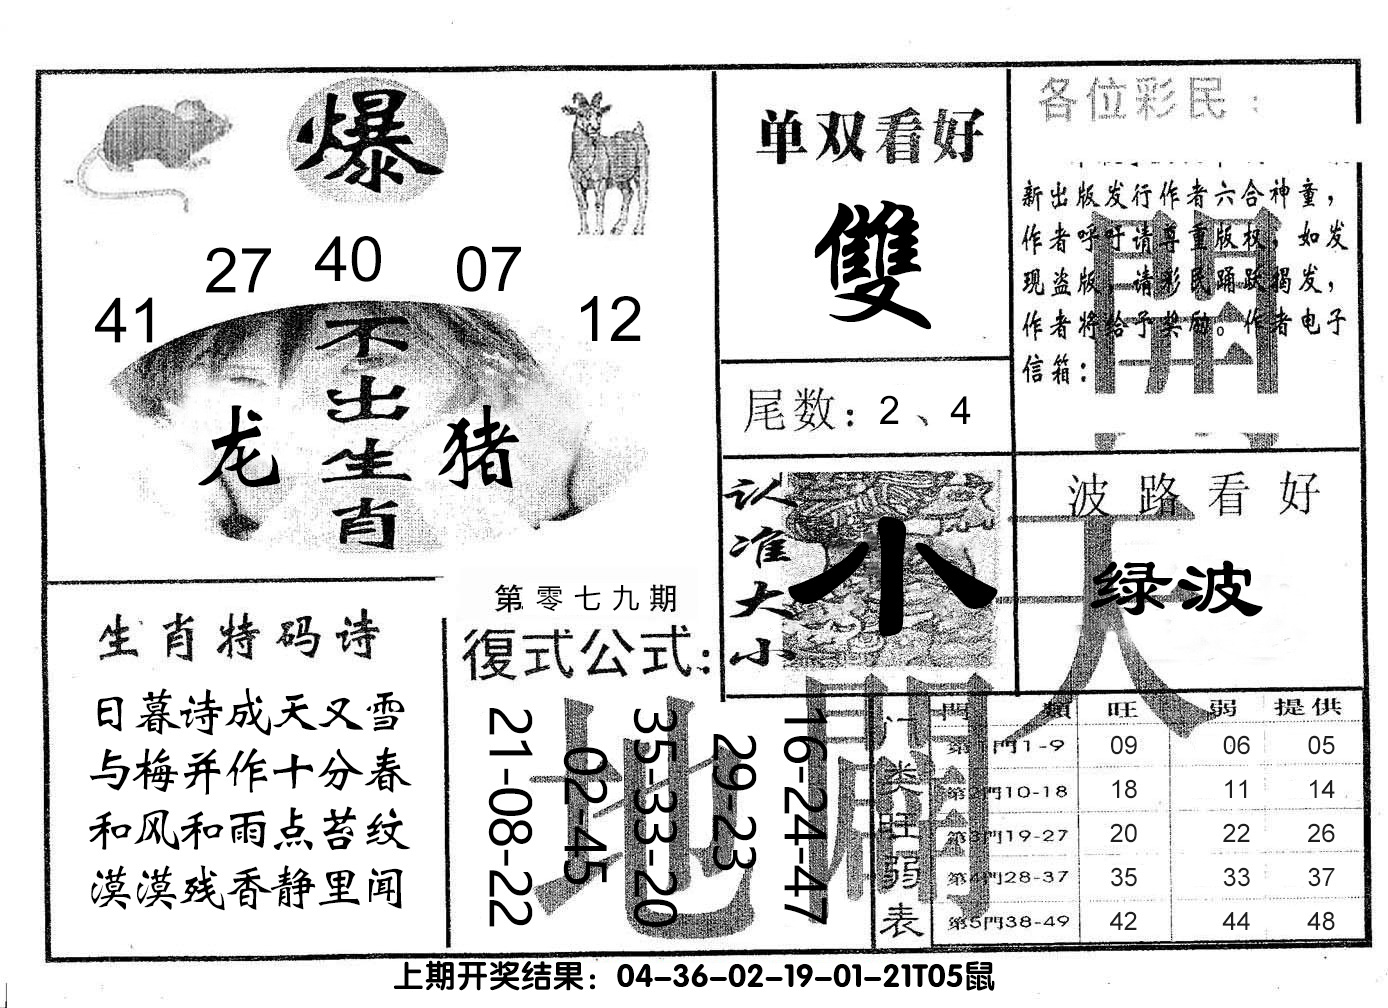 爆
27 40 07
41 12
不出生肖
龙 猪
单双看好
雙
尾数：2、4
各位彩民：
新出版发行作者六合神童，
作者呼吁请尊重版权，如发
现盗版，请彩民踊跃揭发，
作者将给予奖励。作者电子
信箱：
開
认准大小
小
波路看好
绿波
天
生肖特码诗
日暮诗成天又雪
与梅并作十分春
和风和雨点苔纹
漠漠残香静里闻
第零七九期
復式公式：
21-08-22
02-45
35-33-20
29-23
16-24-47
地
門类旺弱表
門類 旺 弱 提供
第1門1-9 09 06 05
第2門10-18 18 11 14
第3門19-27 20 22 26
第4門28-37 35 33 37
第5門38-49 42 44 48
上期开奖结果：04-36-02-19-01-21T05鼠